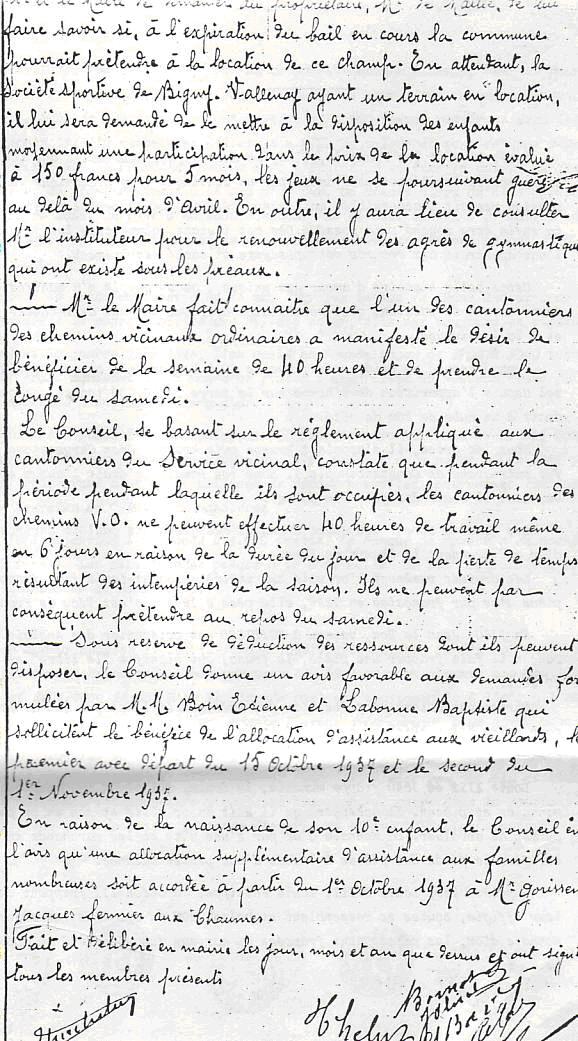 le Maire de demander au propriétaire, Mr de Maillé, de lui
faire savoir si, à l'expiration du bail en cours la commune
pourrait prétendre à la location de ce champ. En attendant, la
Société sportive de Bigny-Vallenay ayant un terrain en location,
il lui sera demandé de le mettre à la disposition des enfants
moyennant une participation dans le prix de la location évalué
à 150 francs pour 5 mois, les jeux ne se poursuivant guère
au delà du mois d'Avril. En outre, il y aura lieu de consulter
Mr l'instituteur pour le renouvellement des agrès de gymnastique
qui ont existé sous les préaux.
Mr le Maire fait connaitre que l'un des cantonniers
des chemins vicinaux ordinaires a manifesté le désir de
bénéficier de la semaine de 40 heures et de prendre le
congé du samedi.
Le Conseil, se basant sur le réglement appliqué aux
cantonniers du Service vicinal, constate que pendant la
période pendant laquelle ils sont occupés, les cantonniers des
chemins V.O. ne peuvent effectuer 40 heures de travail même
en 6 jours en raison de la durée du jour et de la perte de temps
résultant des intempéries de la saison. Ils ne peuvent par
conséquent prétendre au repos du samedi.
Sous reserve de déduction des ressources dont ils peuvent
disposer, le Conseil donne un avis favorable aux demandes for
mulées par M.M. Boin Etienne et Labonne Baptiste qui
sollicitent le bénéfice de l'allocation d'assistance aux vieillards, le
premier avec départ du 15 Octobre 1937 et le second du
1er Novembre 1937.
En raison de la naissance de son 10e enfant, le Conseil é
l'avis qu'une allocation supplémentaire d'assistance aux familles
nombreuses soit accordée à partir du 1er Octobre 1937 à Mr Gorissen
Jacques fermier aux Chaumes.
Fait et délibéré en mairie les jour, mois et an que dessus et ont signé
tous les membres présents